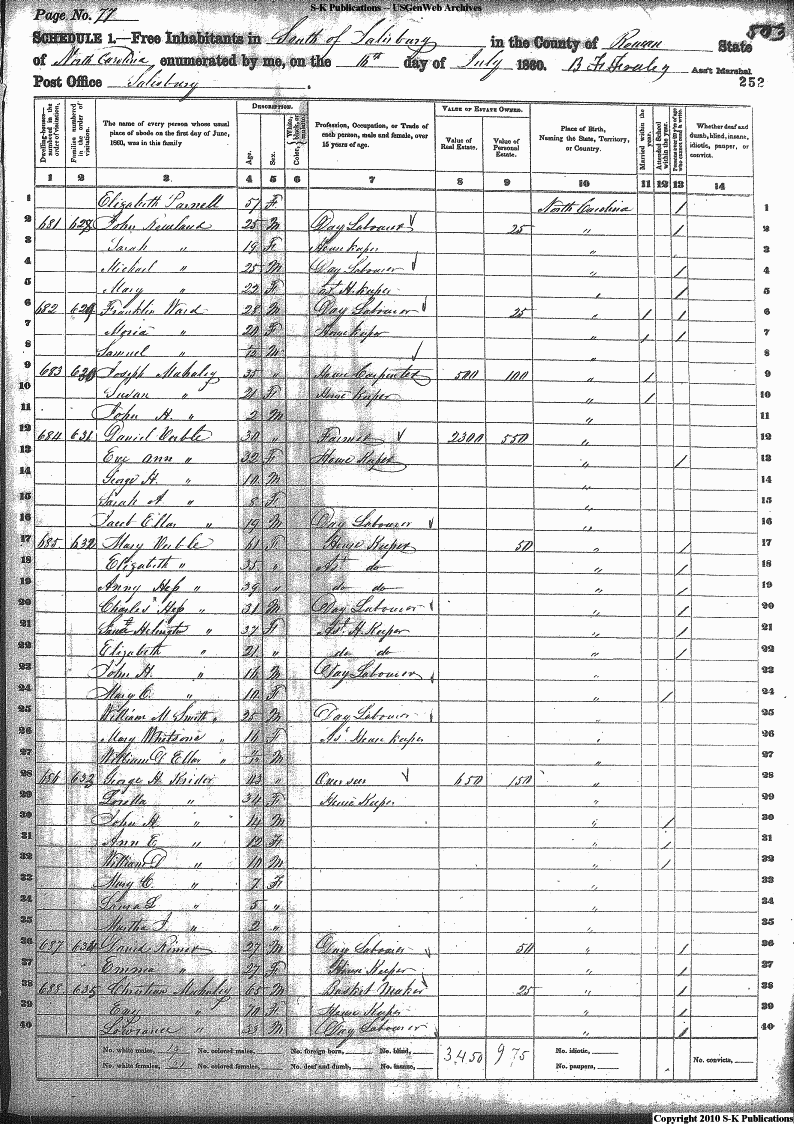 S-K Publications -- USGenWeb Archives
Page No. 77
503
SCHEDULE 1.—Free Inhabitants in South of Salisbury in the County of Rowan State
of North Carolina enumerated by me, on the 16th day of July 1860. Ass't Marshal
Post Office Salisbury. 252
Dwelling-houses—numbered in the order of visitation.
Families numbered in the order of visitation.
The name of every person whose usual place of abode on the first day of June, 1860, was in this family
DESCRIPTION.
Age.
Sex.
Color, White, black, or mulatto.
Profession, Occupation, or Trade of each person, male and female, over 15 years of age.
VALUE OF ESTATE OWNED.
Value of Real Estate.
Value of Personal Estate.
Place of Birth, Naming the State, Territory, or Country.
Married within the year.
Attended School within the year.
Persons over 20 y'rs of age who cannot read & write.
Whether deaf and dumb, blind, insane, idiotic, pauper, or convict.
1 2 3 4 5 6 7 8 9 10 11 12 13 14
1 Elizabeth Parnell 51 F North Carolina / 1
2 681 628 John 25 M Day Labourer 25 " / 2
3 Sarah " 19 F House Keeper " 3
4 Michael " 25 M Day Labourer " / 4
5 Mary " 22 F H. Keeper " / 5
6 682 629 Franklin Ward 28 M Day Labourer 25 " / / 6
7 " 20 F House Keeper " / / 7
8 Samuel " M " 8
9 683 630 Joseph Mahaley 35 " House Carpenter 500 100 " / 9
10 Susan " 21 F House Keeper " / 10
11 John H. " 2 M " 11
12 684 631 Daniel 30 " Farmer 2300 550 " 12
13 Eve Ann " 32 F House Keeper " / 13
14 George H. " 10 M " 14
15 Sarah A " 8 F " 15
16 Jacob Eller " 19 M Day Labourer " 16
17 685 632 Mary 61 F House Keeper 50 " / 17
18 Elizabeth " 35 " Ast do " / 18
19 Anny Hep " 39 " do do " / 19
20 Charles Hep " 31 M Day Labourer " / 20
21 " 37 F Ast. H. Keeper " / 21
22 Elizabeth " 21 " do do " / 22
23 John H. " 16 M Day Labourer " 23
24 Mary C. " 10 F " / 24
25 William M Smith " 25 M Day Labourer " 25
26 Mary Whitsone " 16 F Ast House Keeper " 26
27 William Eller " M " 27
28 686 633 George H Krider 43 " Overseer 650 150 " 28
29 Loretta " 34 F House Keeper " 29
30 John H " 14 M " / 30
31 Ann E " 12 F " / 31
32 William D " 10 M " / 32
33 Mary C. " 7 F " 33
34 Laura L " 5 " " 34
35 Martha J. " 2 " " 35
36 687 634 David Rimer 27 M Day Labourer 50 " / 36
37 Emma " 27 F House Keeper " / 37
38 688 635 Christian Mahaley 65 M Basket Maker 25 " / 38
39 Evy " 70 F House Keeper " / 39
40 Lowrance " 33 M Day Labourer " / 40
No. white males, No. colored males, No. foreign born, No. blind, 3450 975 No. idiotic,
No. white females, No. colored females, No. deaf and dumb, No. insane, No. paupers, No. convicts,
Copyright 2010 S-K Publications